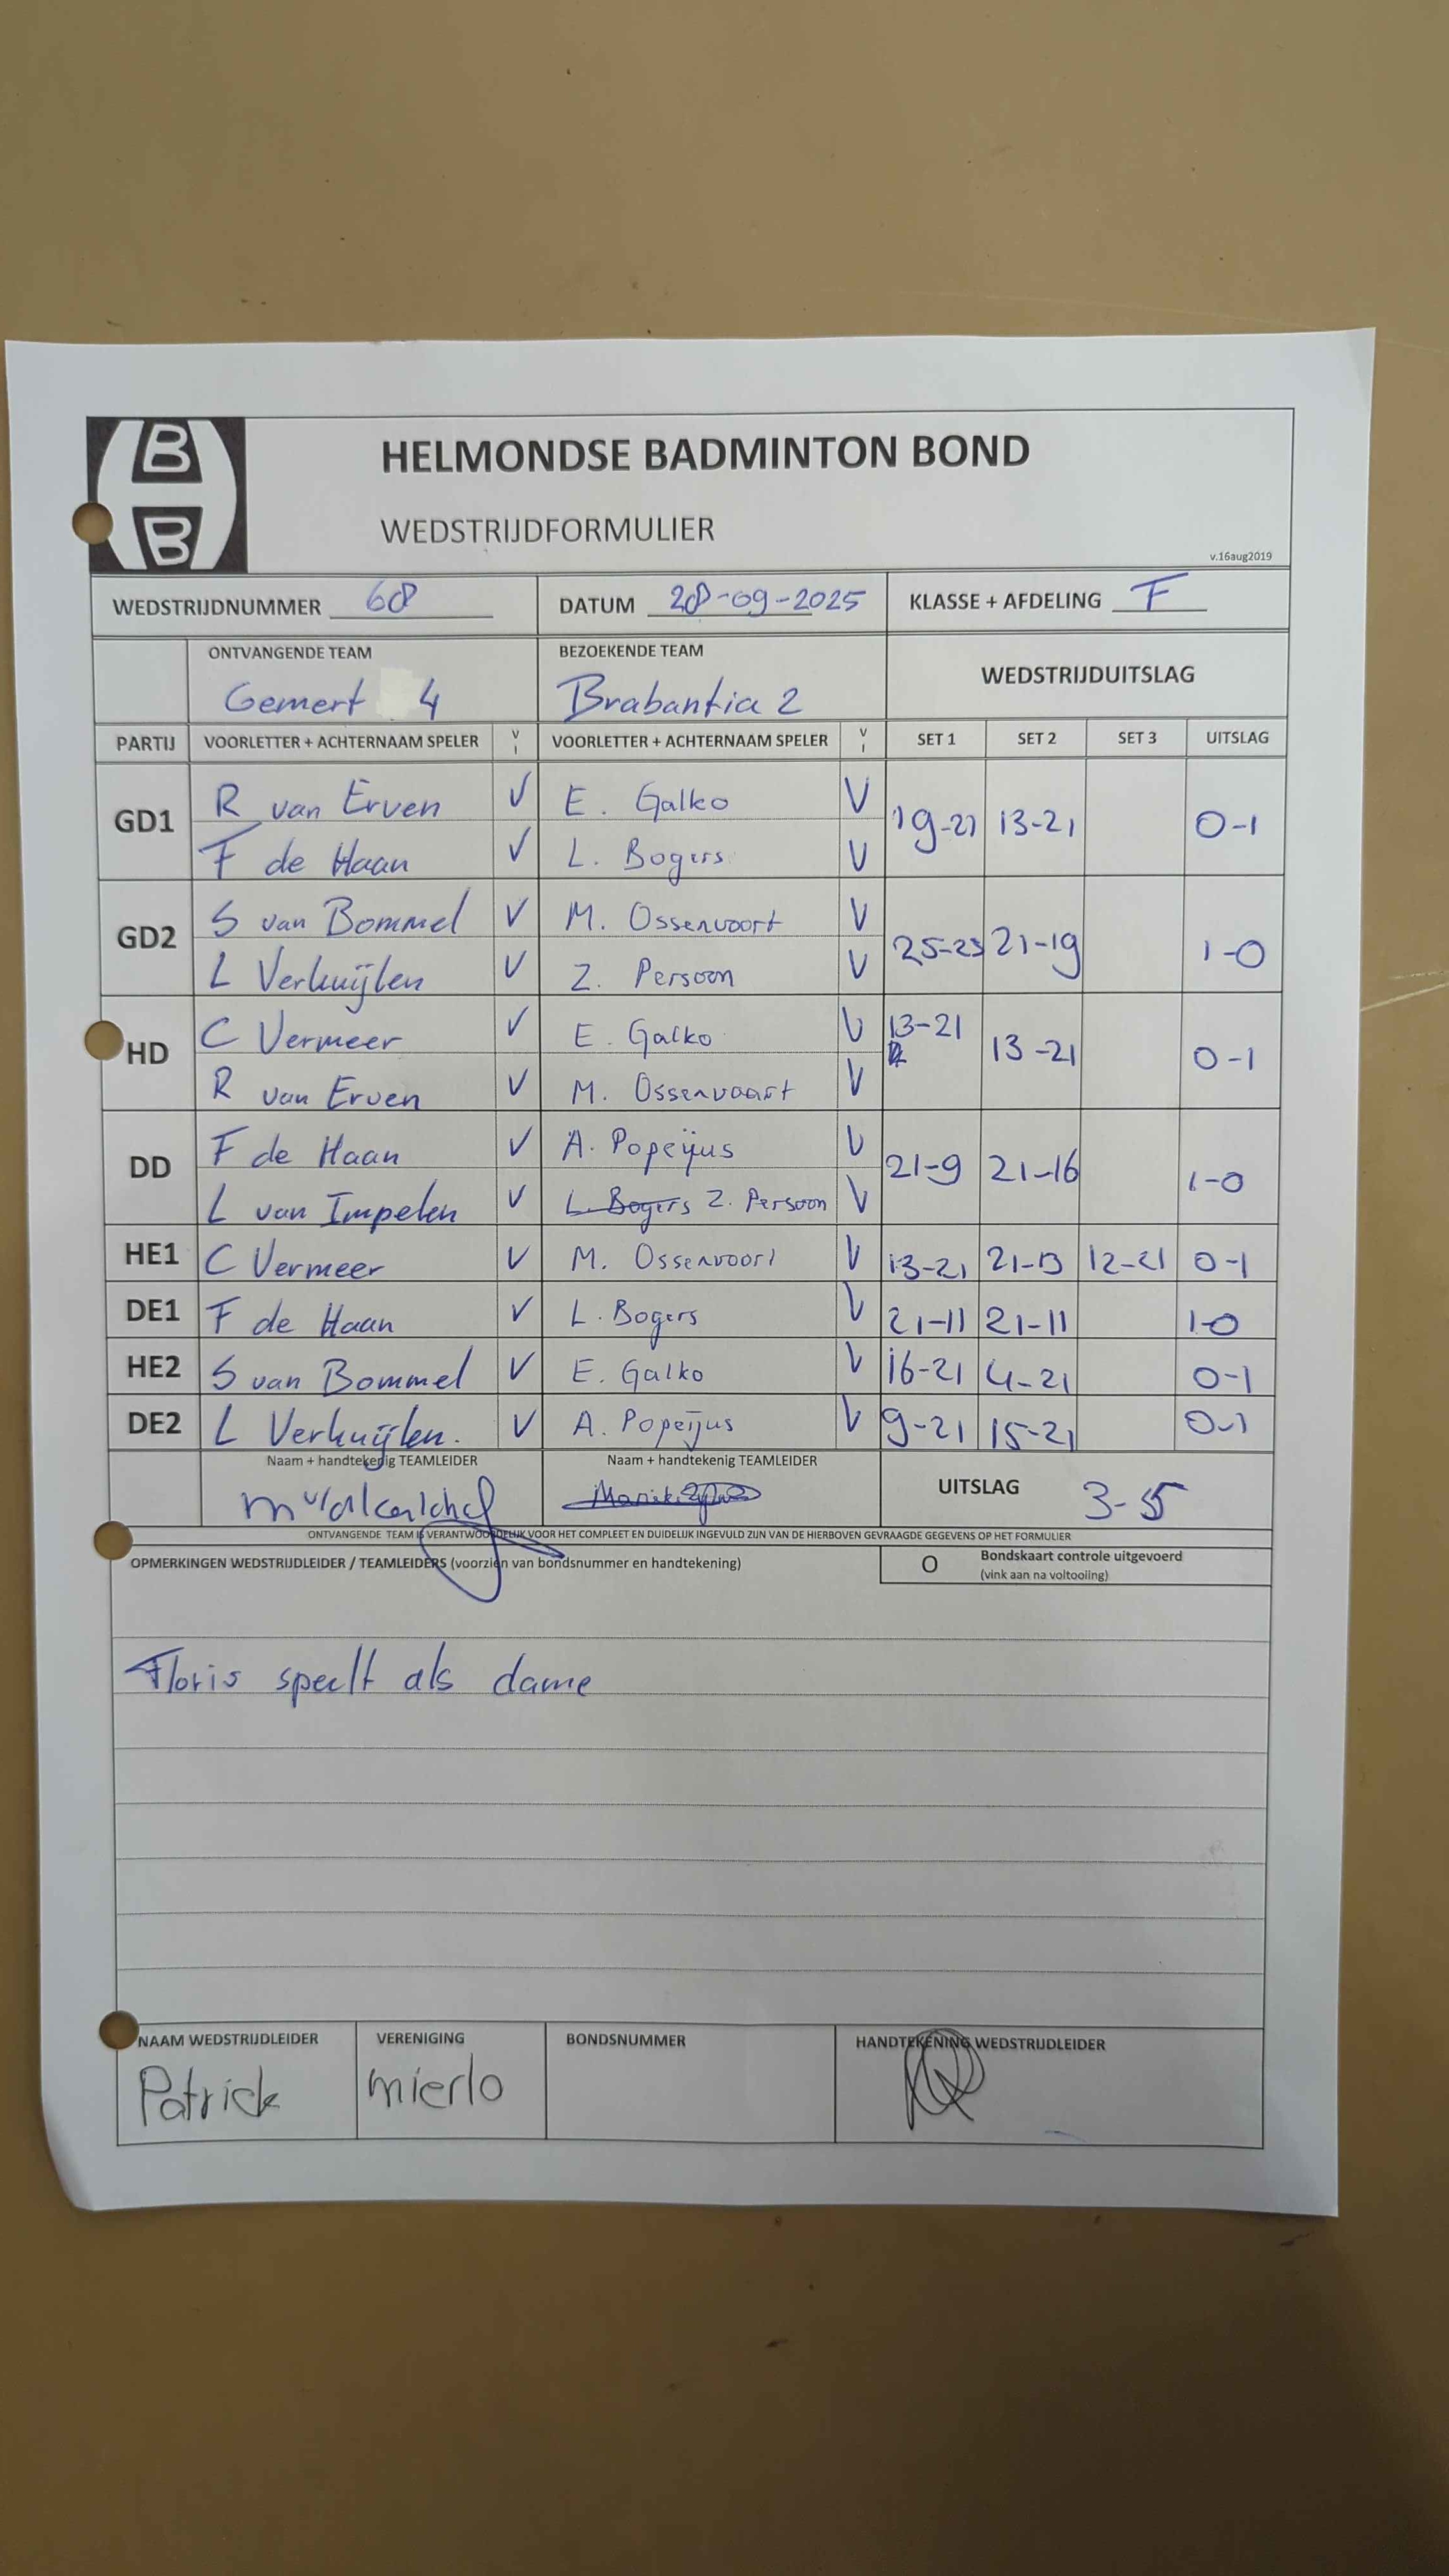 B
B
HELMONDSE BADMINTON BOND
WEDSTRIJDFORMULIER
v.16aug2019
WEDSTRIJDNUMMER 68 DATUM 28-09-2025 KLASSE + AFDELING F
ONTVANGENDE TEAM BEZOEKENDE TEAM WEDSTRIJDUITSLAG
Gemert 4 Brabantia 2
PARTIJ VOORLETTER + ACHTERNAAM SPELER V I VOORLETTER + ACHTERNAAM SPELER V I SET 1 SET 2 SET 3 UITSLAG
GD1 R van Erven V E. Galko V 19-21 13-21 0-1
F de Haan V L. Bogers V
GD2 S van Bommel V M. Ossenvoort V 25-23 21-19 1-0
L Verkuijlen V Z. Persoon V
HD C Vermeer V E. Galko V 13-21 13-21 0-1
R van Erven V M. Ossenvoort V
DD F de Haan V A. Popeijus V 21-9 21-16 1-0
L van Impelen V L. Bogers Z. Persoon V
HE1 C Vermeer V M. Ossenvoort V 13-21 21-13 12-21 0-1
DE1 F de Haan V L. Bogers V 21-11 21-11 1-0
HE2 S van Bommel V E. Galko V 16-21 4-21 0-1
DE2 L Verkuijlen. V A. Popeijus V 9-21 15-21 0-1
Naam + handtekenig TEAMLEIDER Naam + handtekenig TEAMLEIDER UITSLAG 3-5
ONTVANGENDE TEAM IS VERANTWOORDELIJK VOOR HET COMPLEET EN DUIDELIJK INGEVULD ZIJN VAN DE HIERBOVEN GEVRAAGDE GEGEVENS OP HET FORMULIER
OPMERKINGEN WEDSTRIJDLEIDER / TEAMLEIDERS (voorzien van bondsnummer en handtekening) O Bondskaart controle uitgevoerd
(vink aan na voltooiing)
Floris speelt als dame
NAAM WEDSTRIJDLEIDER VERENIGING BONDSNUMMER HANDTEKENING WEDSTRIJDLEIDER
Patrick mierlo